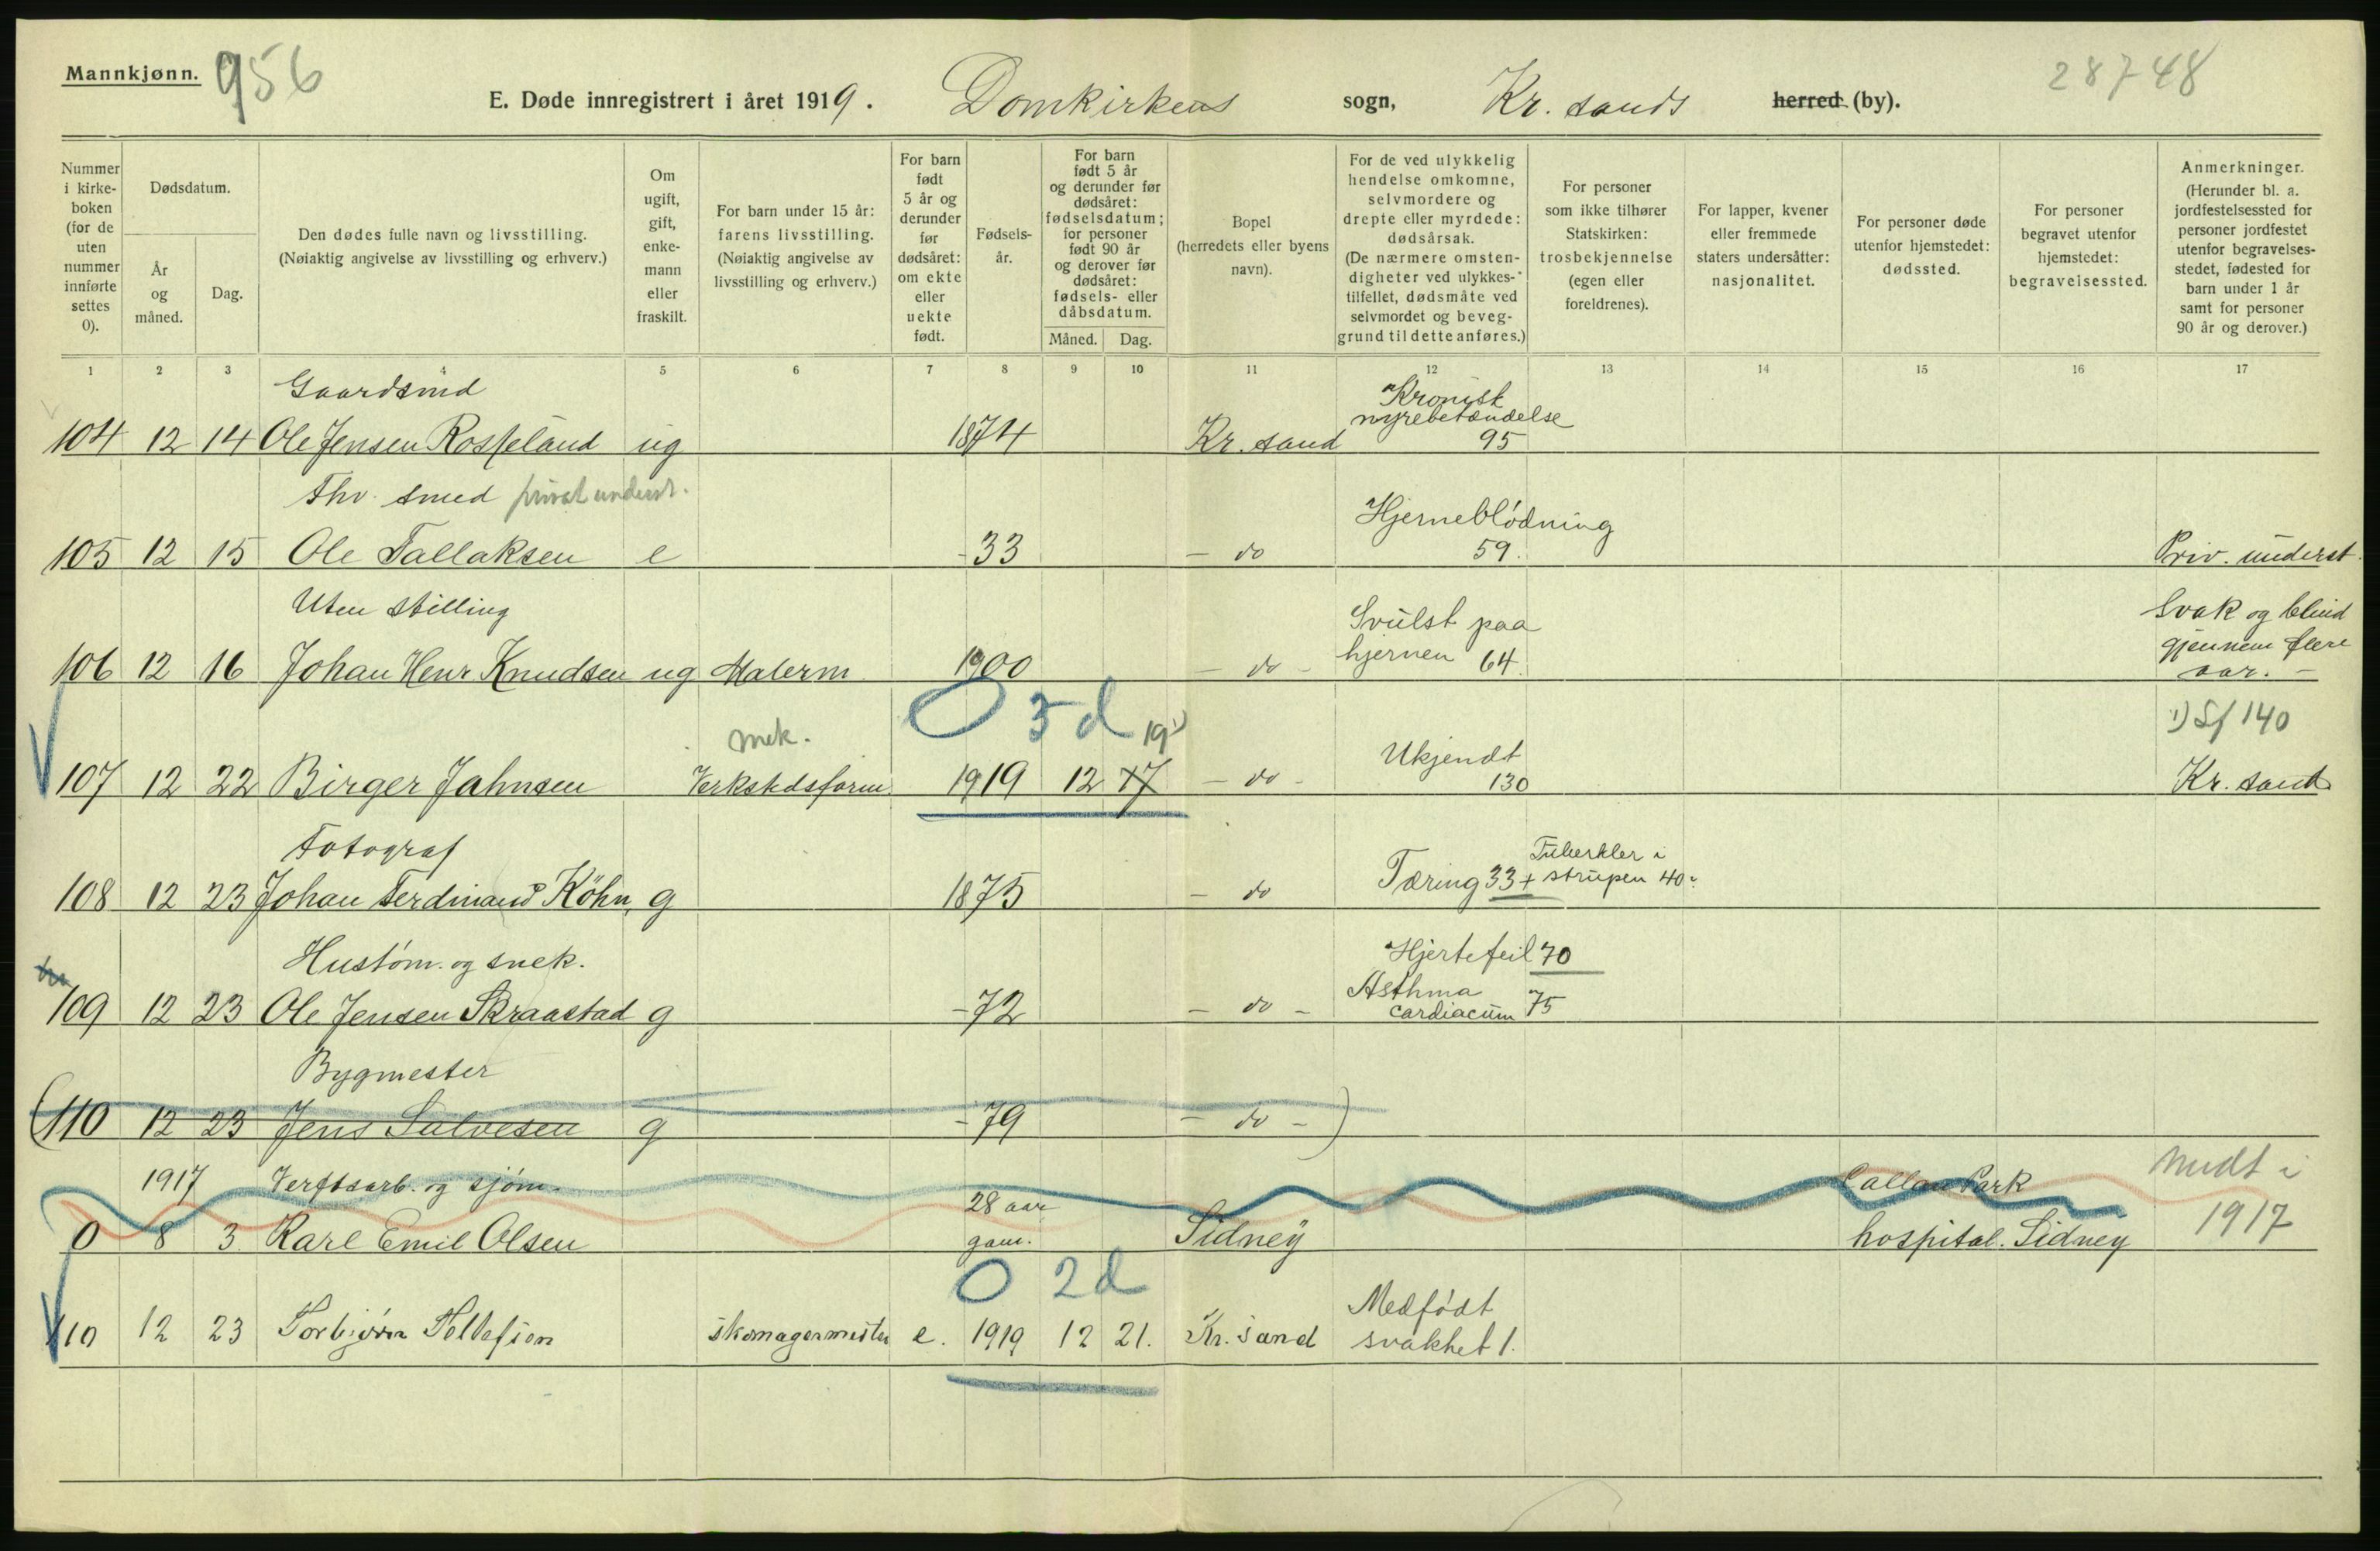 Mannkjønn. 956
28748
E. Døde innregistrert i året 1919. Domkirkens sogn, Kr. sands herred (by).
Nummer i kirke- boken (for de uten nummer innførte settes 0).
Dødsdatum.
År og måned.
Dag.
Den dødes fulle navn og livsstilling. (Nøiaktig angivelse av livsstilling og erhverv.)
Om ugift, gift, enke- mann eller fraskilt.
For barn under 15 år: farens livsstilling. (Nøiaktig angivelse av livsstilling og erhverv.)
For barn født 5 år og derunder før dødsåret: om ekte eller uekte født.
Fødsels- år.
For barn født 5 år og derunder før dødsåret: fødselsdatum; for personer født 90 år og derover før dødsåret: fødsels- eller dåbsdatum.
Måned. Dag.
Bopel (herredets eller byens navn).
For de ved ulykkelig hendelse omkomne, selvmordere og drepte eller myrdede: dødsårsak. (De nærmere omsten- digheter ved ulykkes- tilfellet, dødsmåte ved selvmordet og beveg- grund til dette anføres.)
For personer som ikke tilhører Statskirken: trosbekjennelse (egen eller foreldrenes).
For lapper, kvener eller fremmede staters undersåtter: nasjonalitet.
For personer døde utenfor hjemstedet: dødssted.
For personer begravet utenfor hjemstedet: begravelsessted.
Anmerkninger. (Herunder bl. a. jordfestelsessted for personer jordfestet utenfor begravelses- stedet, fødested for barn under 1 år samt for personer 90 år og derover.)
1 2 3 4 5 6 7 8 9 10 11 12 13 14 15 16 17
Gaardsmd Kronisk nyrebetændelse
104 12 14 Ole Jensen Rosseland ug 1874 Kr. sand 95
Fhv. smed privat underst. Hjerneblødning
105 12 15 Ole Tallaksen e - 33 - do 59. Priv. underst.
Uten stilling Svulst paa Svak og blind gjennem flere
106 12 16 Johan Henr Knudsen ug Malerm 1900 - do - hjernen 64 aar. -
0 5 d 19 1) 1) Sf 140
mek. Ukjendt
107 12 22 Birger Jahnsen Verkstedsform 1919 12 17 - do - 130 Kr. sand
Fotograf Tuberkler i
108 12 23 Johan Ferdinand Köhn, g 1875 - do Tæring 33 + strupen 40
Hustøm. og snek. Hjertefeil 70
109 12 23 Ole Jensen Skraastad g - 72 - do - Asthma cardiacum 75
Bygmester
(110 12 23 Jens Salvesen g - 79 - do - )
1917 Verftsarb. og sjøm. 28 aar Callan Park Medt i
0 8 3 Karl Emil Olsen gam. Sidney hospital. Sidney 1917
0 2 d Medfødt
110 12 23 Torbjørn Tellefsen skomagermester e. 1919 12 21. Kr. sand svakhet 1.